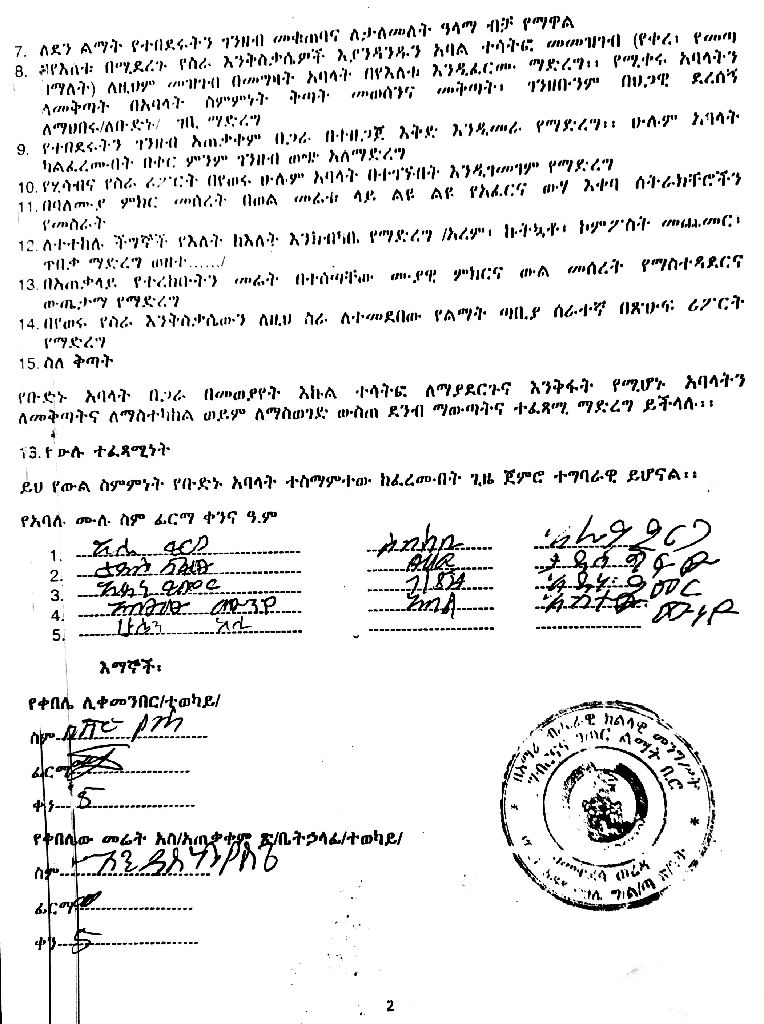 7. ለደን ልማት የተበደሩትን ገንዘብ መቁጠባና ለታለመለት ዓላማ ብቻ የማዋል
8. በየእለቱ በሚደረጉ የስራ እንቅስቃሴዎች እያንዳንዱን አባል ተሳትፎ መመዝገብ (የቀረ፣ የመጣ
ማለት) ለዚህም መዝገብ በመያዝ አባላት በየእለቱ እንዲፈርሙ ማድረግ፡፡ የሚቀሩ አባላትን
ለመቅጣት በአባላት ስምምነት ቅጣት መወሰንና መቅጣት፣ ገንዘቡንም በህጋዊ ደረሰኝ
ለማህበሩ/ለቡድኑ/ ገቢ ማድረግ
9. የተበደሩትን ገንዘብ አጠቃቀም በጋራ በተዘጋጀ እቅድ እንዲመራ የማድረግ፡፡ ሁሉም አባላት
ካልፈረሙበት በቀር ምንም ገንዘብ ወጭ አለማድረግ
10. የሂሳብና የስራ ሪፖርት በየወሩ ሁሉም አባላት በተገኙበት እንዲገመገም የማድረግ
11. በባለሙያ ምክር መሰረት በወል መሬቱ ላይ ልዩ ልዩ የአፈርና ውሃ እቀባ ስትራክቸሮችን
የመስራት
12. ለተተከሉ ችግኞች የእለት ከእለት እንክብካቤ የማድረግ /አረም፣ ኩትኳቶ፣ ኮምፖስት መጨመር፣
ጥበቃ ማድረግ ወዘተ....../
13. በአጠቃላይ የተረከቡትን መሬት በተሰጣቸው ሙያዊ ምክርና ውል መሰረት የማስተዳደርና
ውጤታማ የማድረግ
14. በየወሩ የስራ እንቅስቃሴውን ለዚህ ስራ ለተመደበው የልማት ጣቢያ ሰራተኛ በጽሁፍ ሪፖርት
የማድረግ
15. ስለ ቅጣት
የቡድኑ አባላት በጋራ በመወያየት እኩል ተሳትፎ ለማያደርጉና እንቅፋት የሚሆኑ አባላትን
ለመቅጣትና ለማስተካከል ወይም ለማስወገድ ውስጠ ደንብ ማውጣትና ተፈጻሚ ማድረግ ይችላሉ፡፡
13. የውሉ ተፈጻሚነት
ይህ የውል ስምምነት የቡድኑ አባላት ተስማምተው ከፈረሙበት ጊዜ ጀምሮ ተግባራዊ ይሆናል፡፡
የአባሉ ሙሉ ስም ፊርማ ቀንና ዓ.ም
1.
2.
3.
4.
5.
እማኞች፡
የቀበሌ ሊቀመንበር/ተወካይ/
ስም
ፊርማ
ቀን 5
የቀበሌው መሬት አስ/አጠቃቀም ጽ/ቤትኃላፊ/ተወካይ/
ስም
ፊርማ
ቀን 5
በአማራ ብሔራዊ ክልላዊ መንግሥት
ግብርናና ገጠር ልማት ቢሮ
2